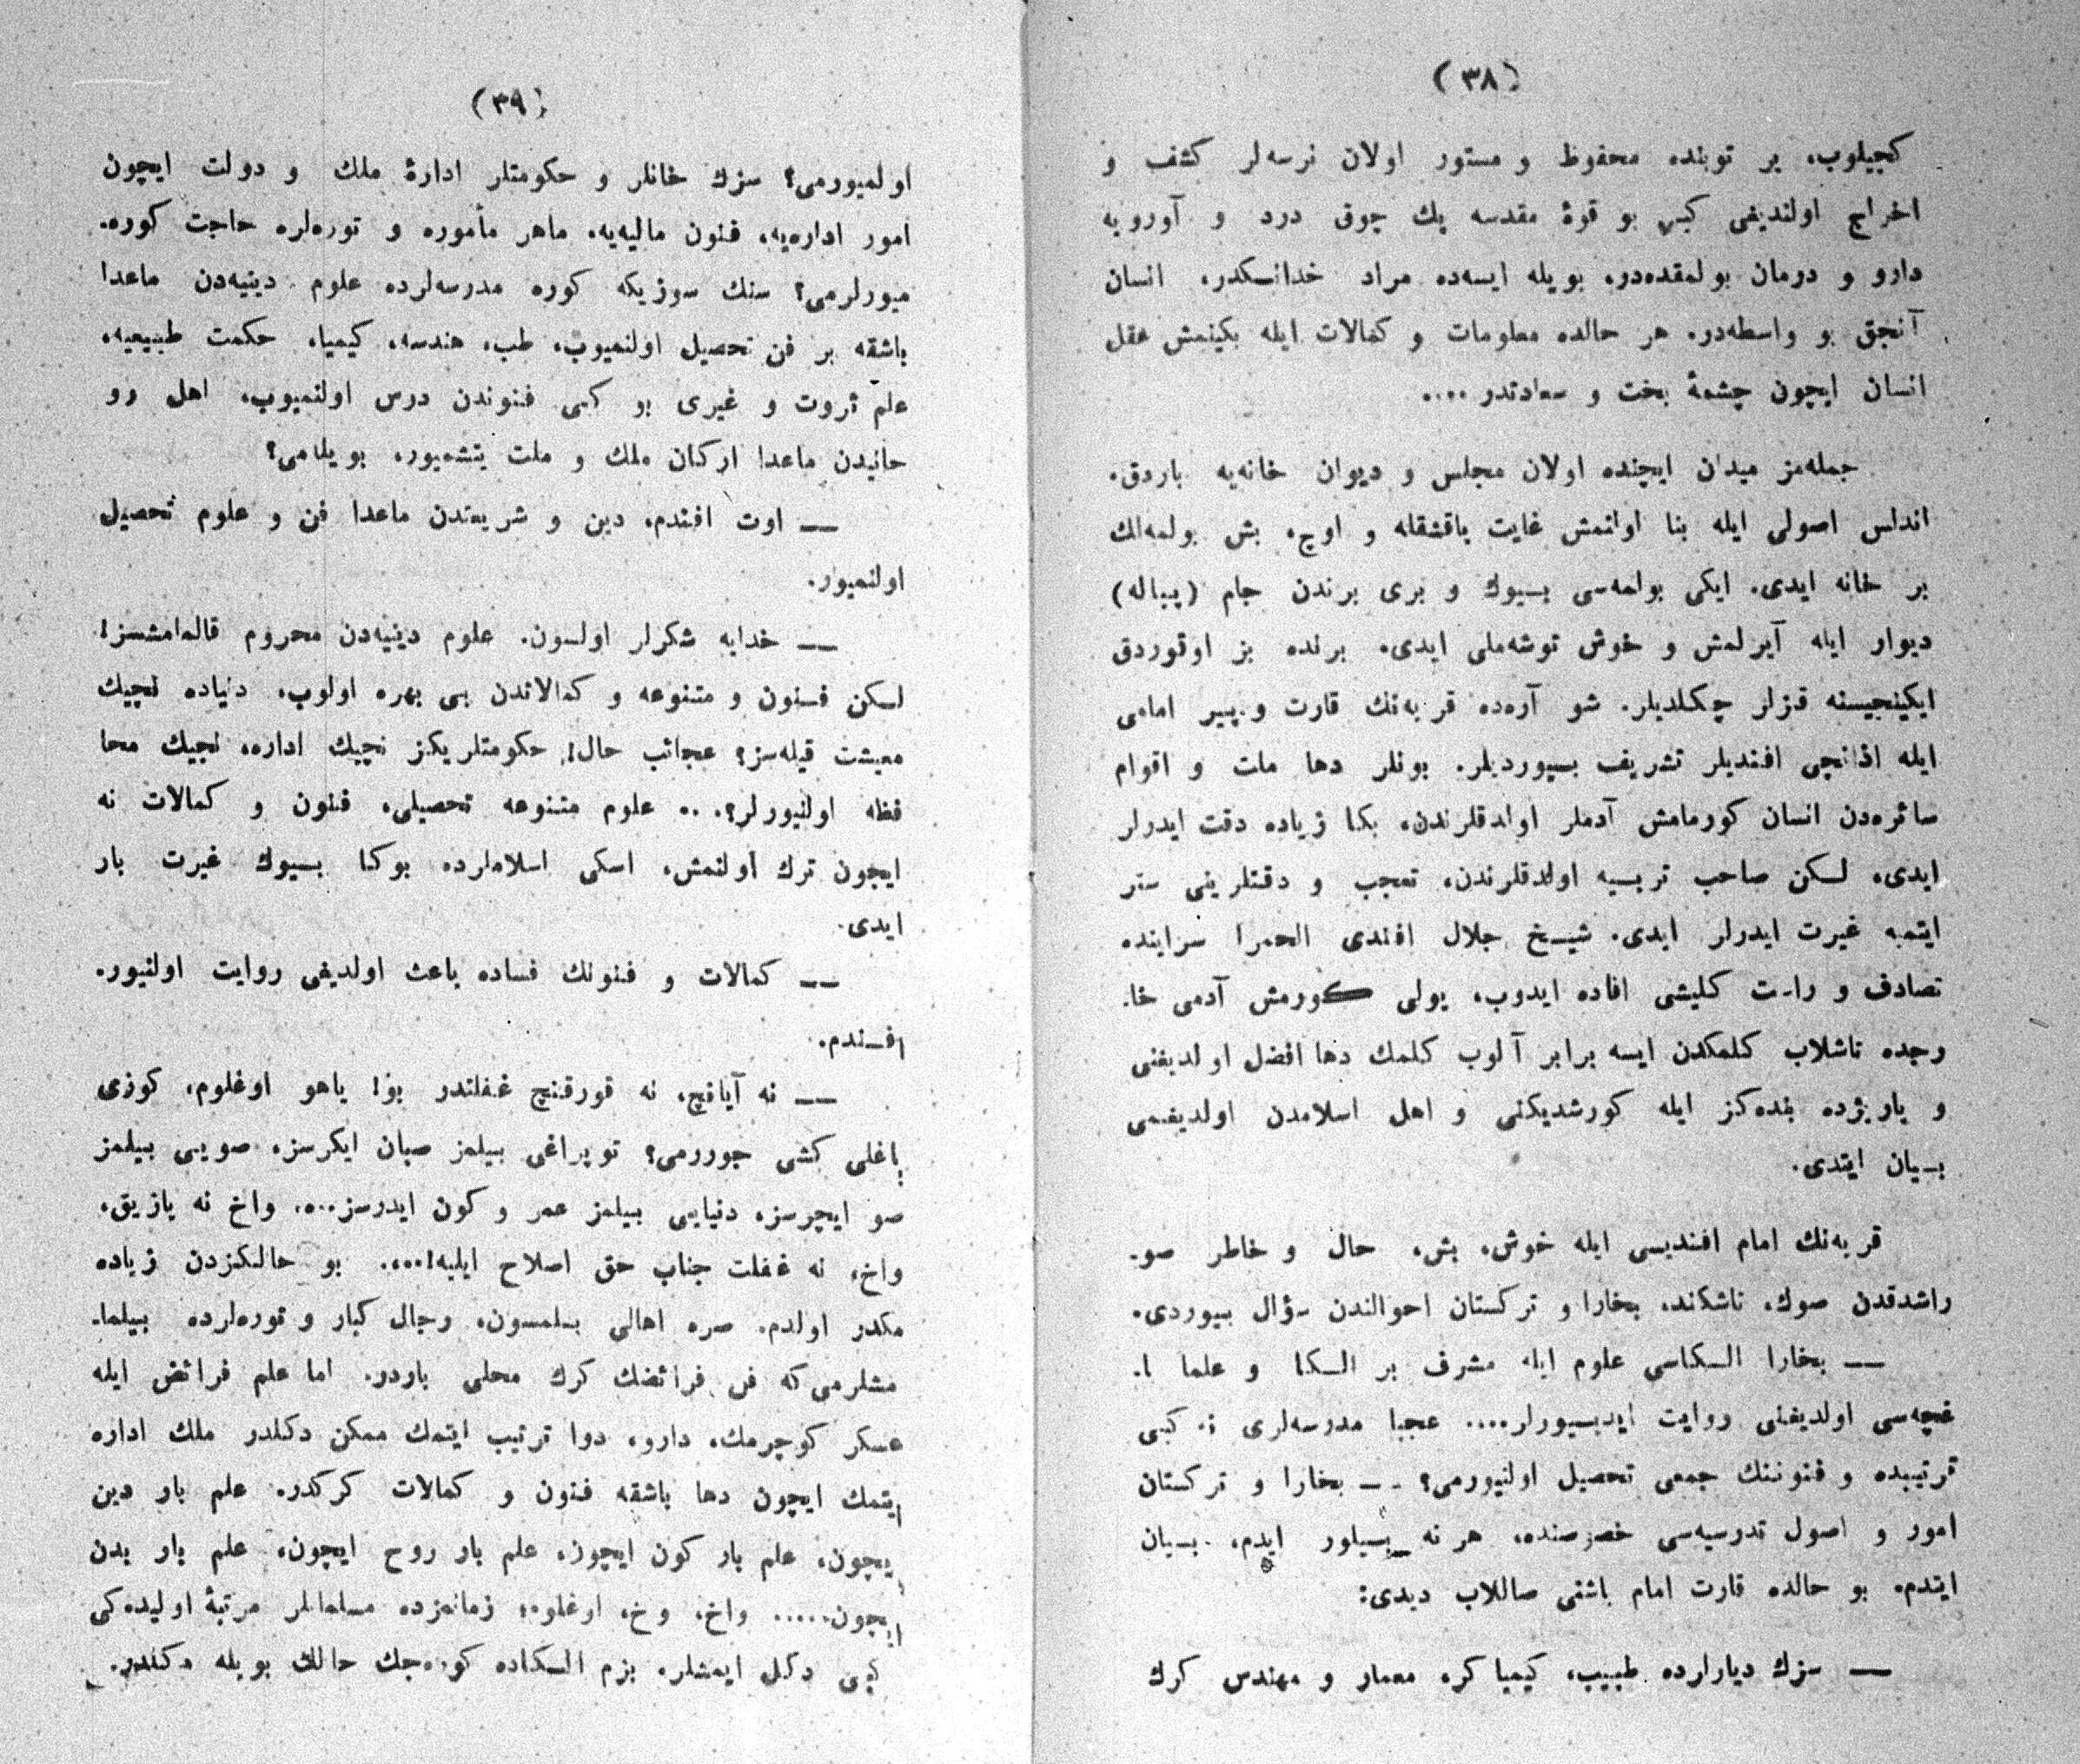 (٣٨)
كچيلوب، ير توبنده محفوظ و مستور اولان نرسه‌لر كشف و
اخراج اولنديغى كبى بو قوۀ مقدسه پك چوق درد و آورويه
دارو و درمان بولمقده‌در، بويله ايسه‌ده مراد خدانىكدر، انسان
آنجق بو واسطه‌در. هر حالده معلومات و كمالات ايله بكينمش عقل
انسان ايچون چشمۀ بخت و سعادتدر ....
جمله‌مز ميدان ايچنده اولان مجلس و ديوان خانه‌يه باردق.
اندلس اصولى ايله بنا اولنمش غايت ياقشقله و اوچ، بش بولمه‌لك
بر خانه ايدى. ايكى بولمه‌سى بيوك و برى برندن جام (پياله)
ديوار ايله آيرلمش و خوش توشه‌ملى ايدى. برنده بز اوتوردق
ايكينجيسنه قزلر چكلديلر. شو آره‌ده قريه‌نك قارت و پير امامى
ايله اذانچى افنديلر تشريف بيورديلر. بونلر دها ملت و اقوام
سائره‌دن انسان كورمامش آدملر اولدقلرندن، بكا زياده دقت ايدرلر
ايدى، لكن صاحب تربيه اولدقلرندن، تعجب و دقتلرينى ستر
ايتمه غيرت ايدرلر ايدى. شيخ جلال افندى الحمرا سراينده
تصادف و راست كليشى افاده ايدوب، يولى كورمش آدمى خا-
رجده تاشلاب كلمكدن ايسه برابر آلوب كلمك دها افضل اولديغنى
و پاريژده بنده‌كز ايله كورشديكنى و اهل اسلامدن اولديغمى
بيان ايتدى.
قريه‌نك امام افنديسى ايله خوش، بش، حال و خاطر صو-
راشدقدن صوك، تاشكند، بخارا و تركستان احوالندن سؤال بيوردى.
— بخارا الكاسى علوم ايله مشرف بر الكا و علما ا-
غچه‌سى اولديغنى روايت ايديبيورلر.... عجبا مدرسه‌لرى نه كبى
ترتيبده و فنوننك جمعى تحصيل اولنيورمى؟ — بخارا و تركستان
امور و اصول تدرسيه‌سى خصوصنده، هر نه بيلور ايدم، بيان
ايتدم. بو حالده قارت امام باشنى صاللاب ديدى:
— سزك ديارلرده طبيب، كيمياكر، معمار و مهندس كرك
(٣٩)
اولميورمى؟ سزك خانلر و حكومتلر ادارۀ ملك و دولت ايچون
امور اداره‌يه، فنون ماليه‌يه، ماهر مأموره و توره‌لره حاجت كوره-
ميورلرمى؟ سنك سوزيكه كوره مدرسه‌لرده علوم دينيه‌دن ماعدا
باشقه بر فن تحصيل اولنميوب، طب، هندسه، كيميا، حكمت طبيعيه،
علم ثروت و غيرى بو كبى فنوندن درس اولنميوب، اهل رو
حانيدن ماعدا اركان ملك و ملت يتشميور، بويله‌مى؟
— اوت افندم، دين و شريعتدن ماعدا فن و علوم تحصيل
اولنميور.
— خدايه شكرلر اولسون. علوم دينيه‌دن محروم قالمامشسز!
لكن فنون و متنوعه و كمالاتدن بى بهره اولوب، دنياده نچيك
معيشت قيله‌سز؟ عجائب حال! حكومتلريكز نچيك اداره، نچيك محا
فظه اولنيورلر؟... علوم متنوعه تحصيلى، فنون و كمالات نه
ايچون ترك اولنمش، اسكى اسلاملرده بوكا بيوك غيرت بار
ايدى.
— كمالات و فنونك فساده باعث اولديغى روايت اولنيور.
افندم.
— نه آيانچ، نه قورقنچ غفلتدر بو! ياهو اوغلوم، كوزى
باغلى كشى جوررمى؟ توپراغى بيلمز صبان ايكرسز، صويى بيلمز
صو ايچرسز، دنيايى بيلمز عمر و كون ايدرسز... واخ نه يازيق،
واخ، نه غفلت جناب حق اصلاح ايليه!.... بو حالكزدن زياده
مكدر اولدم. صره اهالى بلمسون، رجال كبار و توره‌لرده بيلما-
مشلرمى كه فن فرائضك كرك محلى باردر. اما علم فرائض ايله
عسكر كوچرمك، دارو، دوا ترتيب ايتمك ممكن دكلدر ملك اداره
ايتمك ايچون دها باشقه فنون و كمالات كركدر. علم بار دين
ايچون، علم بار كون ايچون، علم بار روح ايچون، علم بار بدن
ايچون..... واخ، وخ، اوغلوم؛ زمانمزده مسلمانلر مرتبۀ اوليده‌كى
كبى دكل ايمشلر. بزم الكاده كوره‌جك حالك بويله دكلدر.